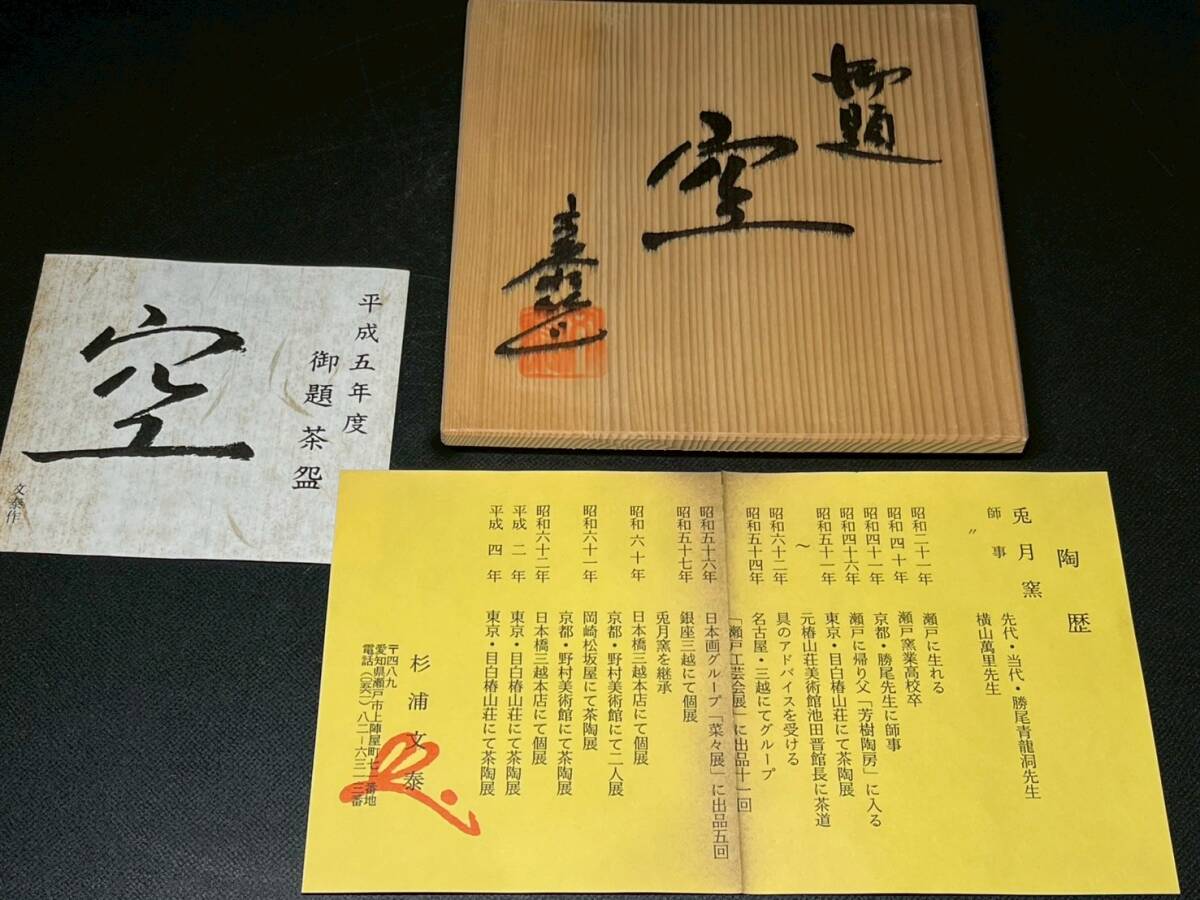 御題
空
平成五年度
御題茶盌
空
文泰作
陶歴
兎月窯
師事 先代・当代・勝尾青龍洞先生
〃 横山萬里先生
昭和二十一年 瀬戸に生れる
昭和四十年 瀬戸窯業高校卒
昭和四十一年 京都・勝尾先生に師事
昭和四十六年 瀬戸に帰り父「芳樹陶房」に入る
昭和五十一年 東京・目白椿山荘にて茶陶展
〜 元椿山荘美術館池田晋館長に茶道
昭和六十二年 具のアドバイスを受ける
昭和五十四年 名古屋・三越にてグループ
「瀬戸工芸会展」に出品十一回
昭和五十六年 日本画グループ「菜々展」に出品五回
昭和五十七年 銀座三越にて個展
兎月窯を継承
昭和六十年 日本橋三越本店にて個展
京都・野村美術館にて二人展
昭和六十一年 岡崎松坂屋にて茶陶展
京都・野村美術館にて茶陶展
昭和六十二年 日本橋三越本店にて個展
平成二年 東京・目白椿山荘にて茶陶展
平成四年 東京・目白椿山荘にて茶陶展
杉浦文泰
〒四八九
愛知県瀬戸市上陣屋町七一番地
電話